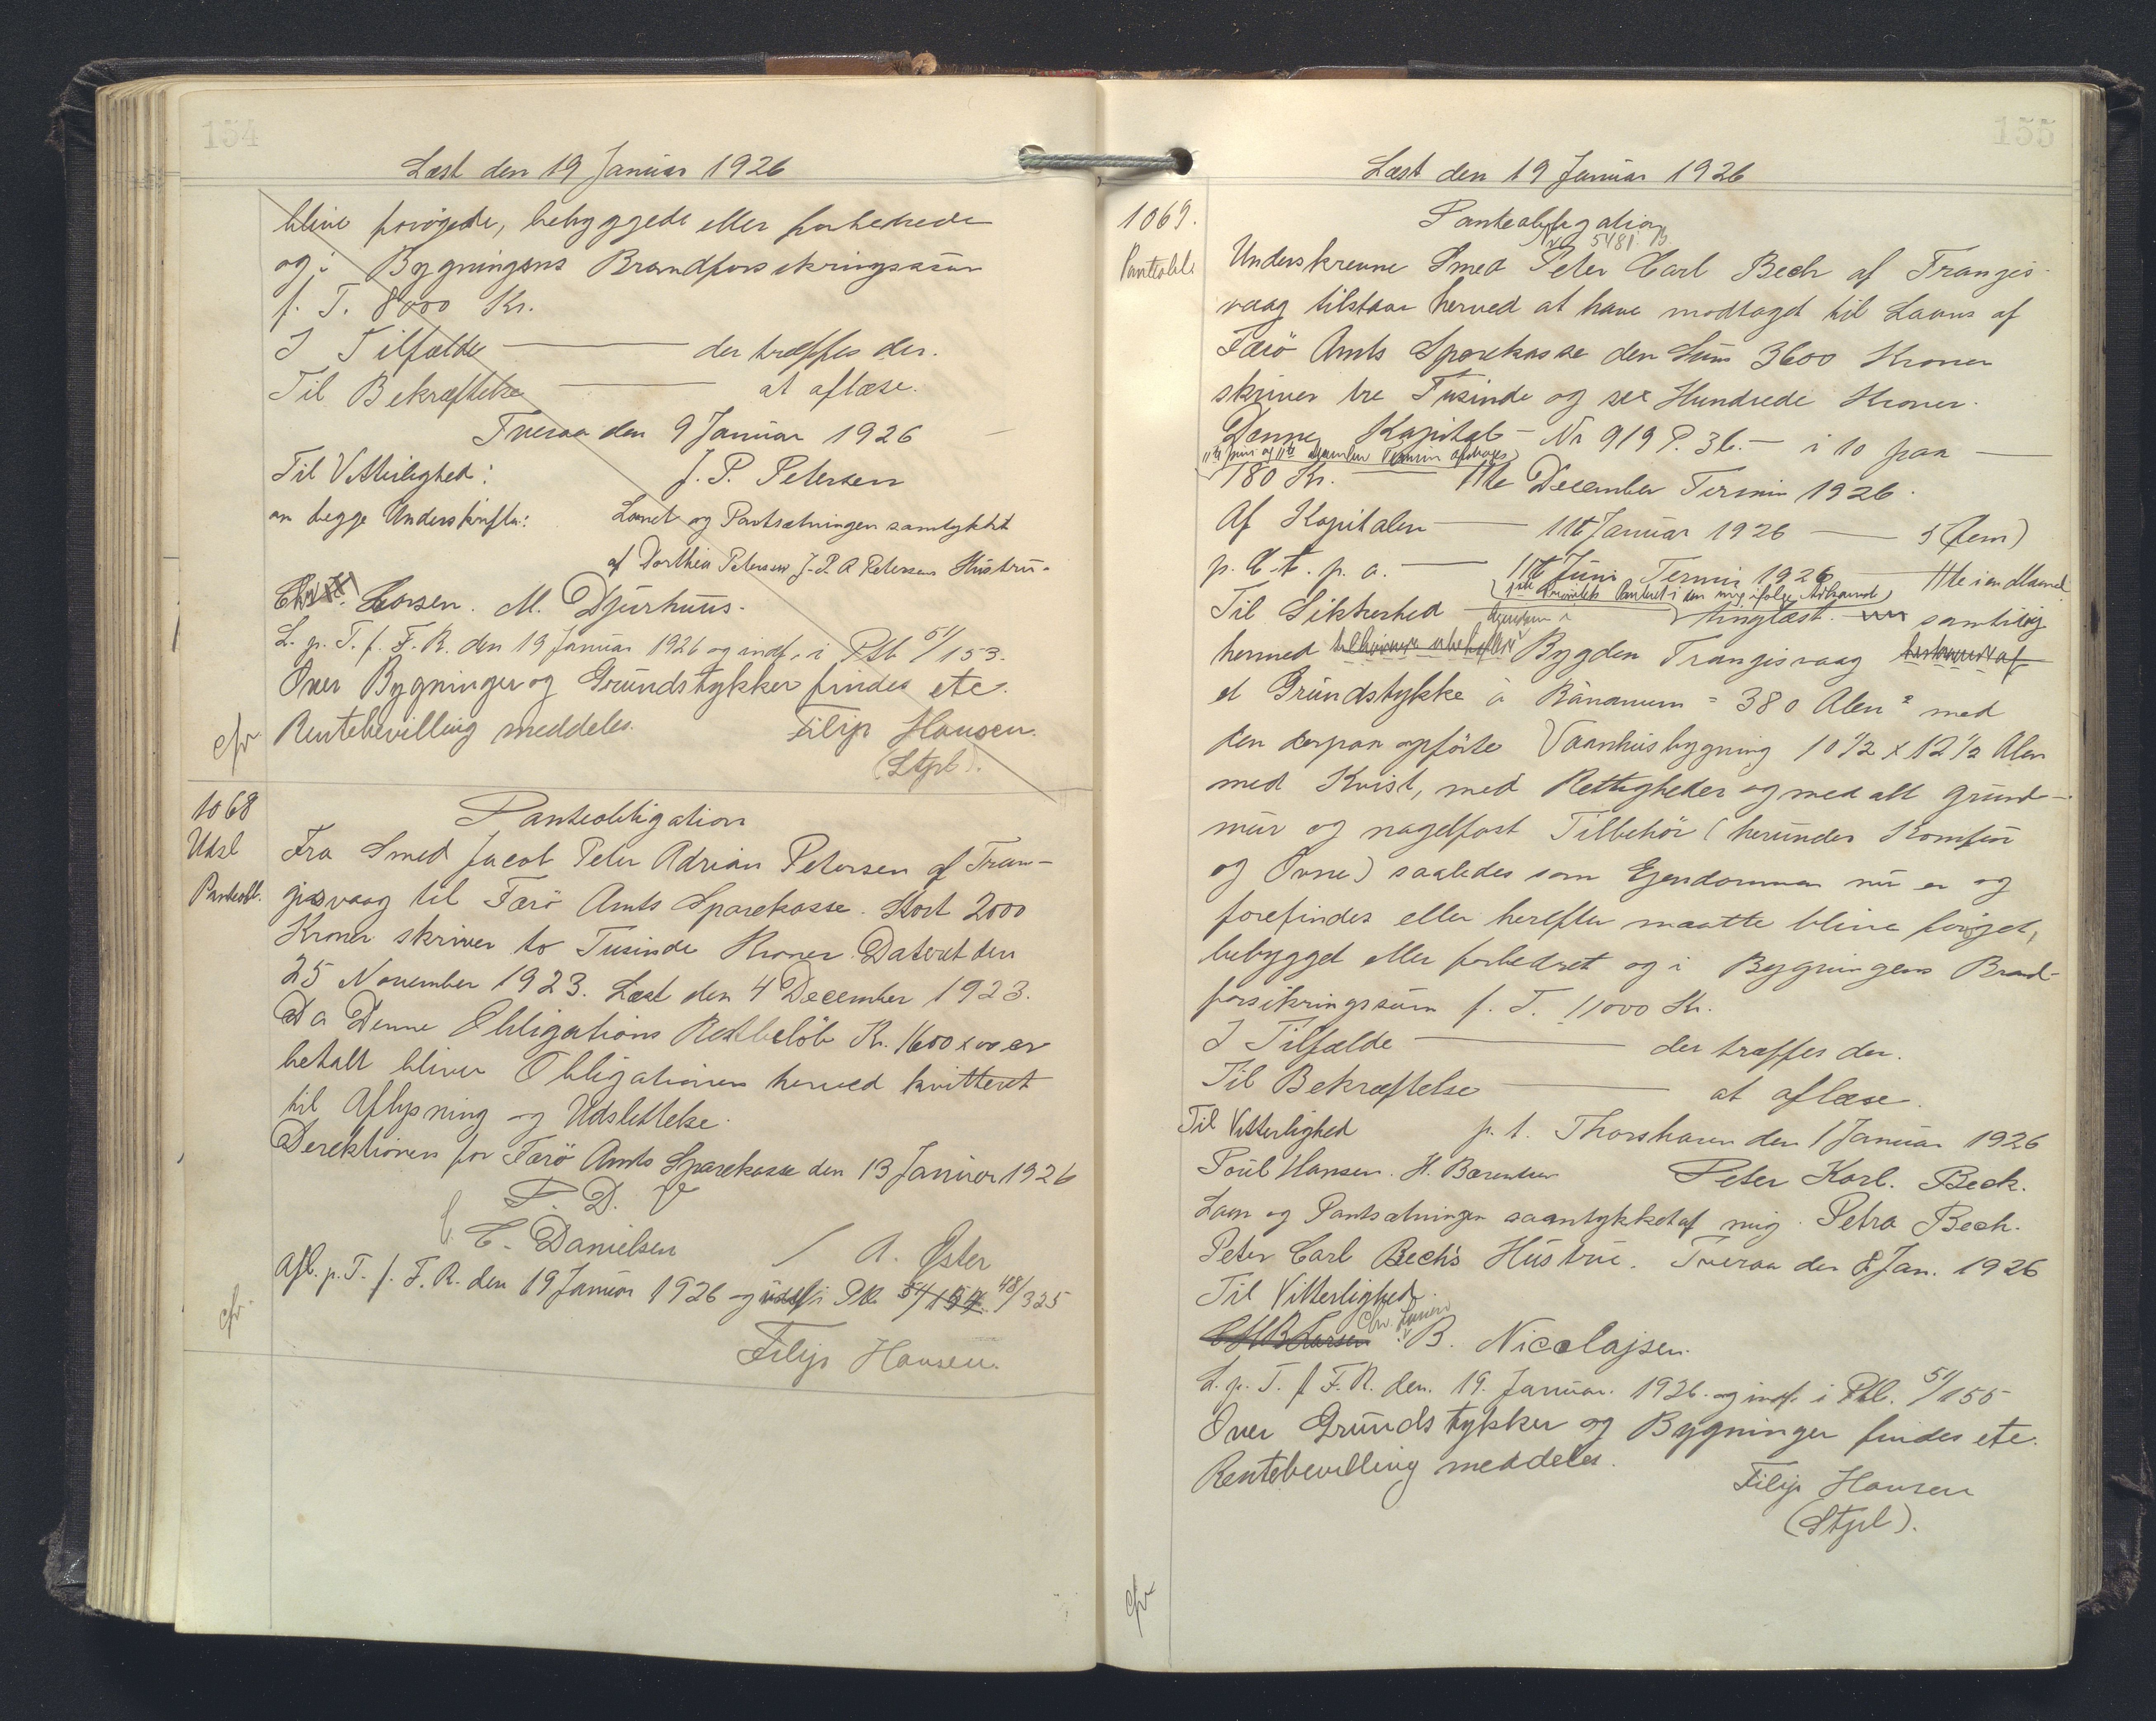 154
Læst den 19 Januar 1926
blive forøgede, bebyggede eller forbedrede
og i Bygningens Brandforsikringssum
f. T. 8000 Kr.
I Tilfælde ——— der træffes der.
Til Bekræftelse ——— at aflæse.
Tveraa den 9 Januar 1926
Til Vitterlighed: J. P. Petersen
om begge Underskrifter: Laanet og Pantsætningen samtykket
af Dorthea Petersen J. P. A Petersens Hustru.
Larsen. M. Djurhuus.
L. p. T. f. F. R. den 19 Januar 1926 og indf. i Ptb 51/153.
Over Bygninger og Grundstykker findes etc.
Rentebevilling meddeles. Filip Hansen.
cfr. (Stpl).
1068
Udsl
Panteobl.
Panteobligation
Fra Smed Jacob Peter Adrian Petersen af Tran-
gisvaag til Færö Amts Sparekasse. Stort 2000
Kroner skriver to Tusinde Kroner. Dateret den
25 November 1923. Læst den 4 December 1923.
Da Denne Obligations Restbeløb Kr. 1600 x 00 er
betalt bliver Obligationen herved kvitteret
til Aflysning og Udslettelse.
Derektionen for Færö Amts Sparekasse den 13 Januar 1926
P. D. V
C. C. Danielsen / A. Øster
Afl. p. T. f. F. R. den 19 Januar 1926 og udsl i Ptb. 51/154 48/325
cfr
Filip Hansen.
155
Læst den 19 Januar 1926
1069.
Panteobl.
Panteobligation
Nr 5481 B
Underskrevne Smed Peter Carl Bech af Trangis-
vaag tilstaar herved at have modtaget til Laans af
Færö Amts Sparekasse den Sum 3600 Kroner
skriver tre Tusinde og sex Hundrede Kroner.
Denne Kapital — Nr 919 P. 36. — i 10 paa —
11te Juni og 11te December Termin afdrages
180 Kr. ——— 11te December Termin 1926.
Af Kapitalen ——— 11te Januar 1926 ——— 5 (fem)
p. C. t. p. a. ——— 11te Juni Termin 1926 ——— 11te i en Maaned
1ste Prioritets Panteret i den mig ifølge Adkomst
Til Sikkerhed ——— tinglæst. samtidig
Ejendom i
hermed Bygden Trangisvaag bestaaende af
et Grundstykke á Bánanum = 380 Alen² med
den derpaa opførte Vaanhusbygning 10 1/2 x 12 1/2 Alen
med Kvist, med Rettigheder og med alt grund-
mur og nagelfast Tilbehör (herunder Komfur
og Ovne) saaledes som Ejendommen nu er og
forefindes eller herefter maatte blive forøget,
bebygget eller forbedret og i Bygningens Brand-
forsikringssum f. T. 11000 Kr.
I Tilfælde ——— der træffes der.
Til Bekræftelse ——— at aflæse.
Til Vitterlighed p. t. Thorshavn den 1 Januar 1926
Poul Hansen. H. Bærentsen Peter Karl. Beck.
Laan og Pantsætningen saamtykket af mig. Petra Bech.
Peter Carl Bech's Hustrue. Tveraa den 8 Jan. 1926
Til Vitterlighed.
Chr. Larsen
B. Nicolajsen.
L. p. T. f F. R. den. 19. Januar. 1926. og indf. i Ptb. 51/155
Over Grundstykker og Bygninger findes etc.
Rentebevilling meddeles.
Filip Hansen
(Stpl).
cfr